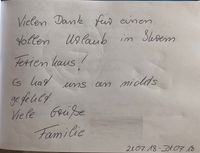 Vielen Dank für einen
tollen Urlaub in Ihrem
Ferienhaus!
Es hat uns an nichts
gefehlt
Viele Grüße
Familie
21.07.18-31.07.18